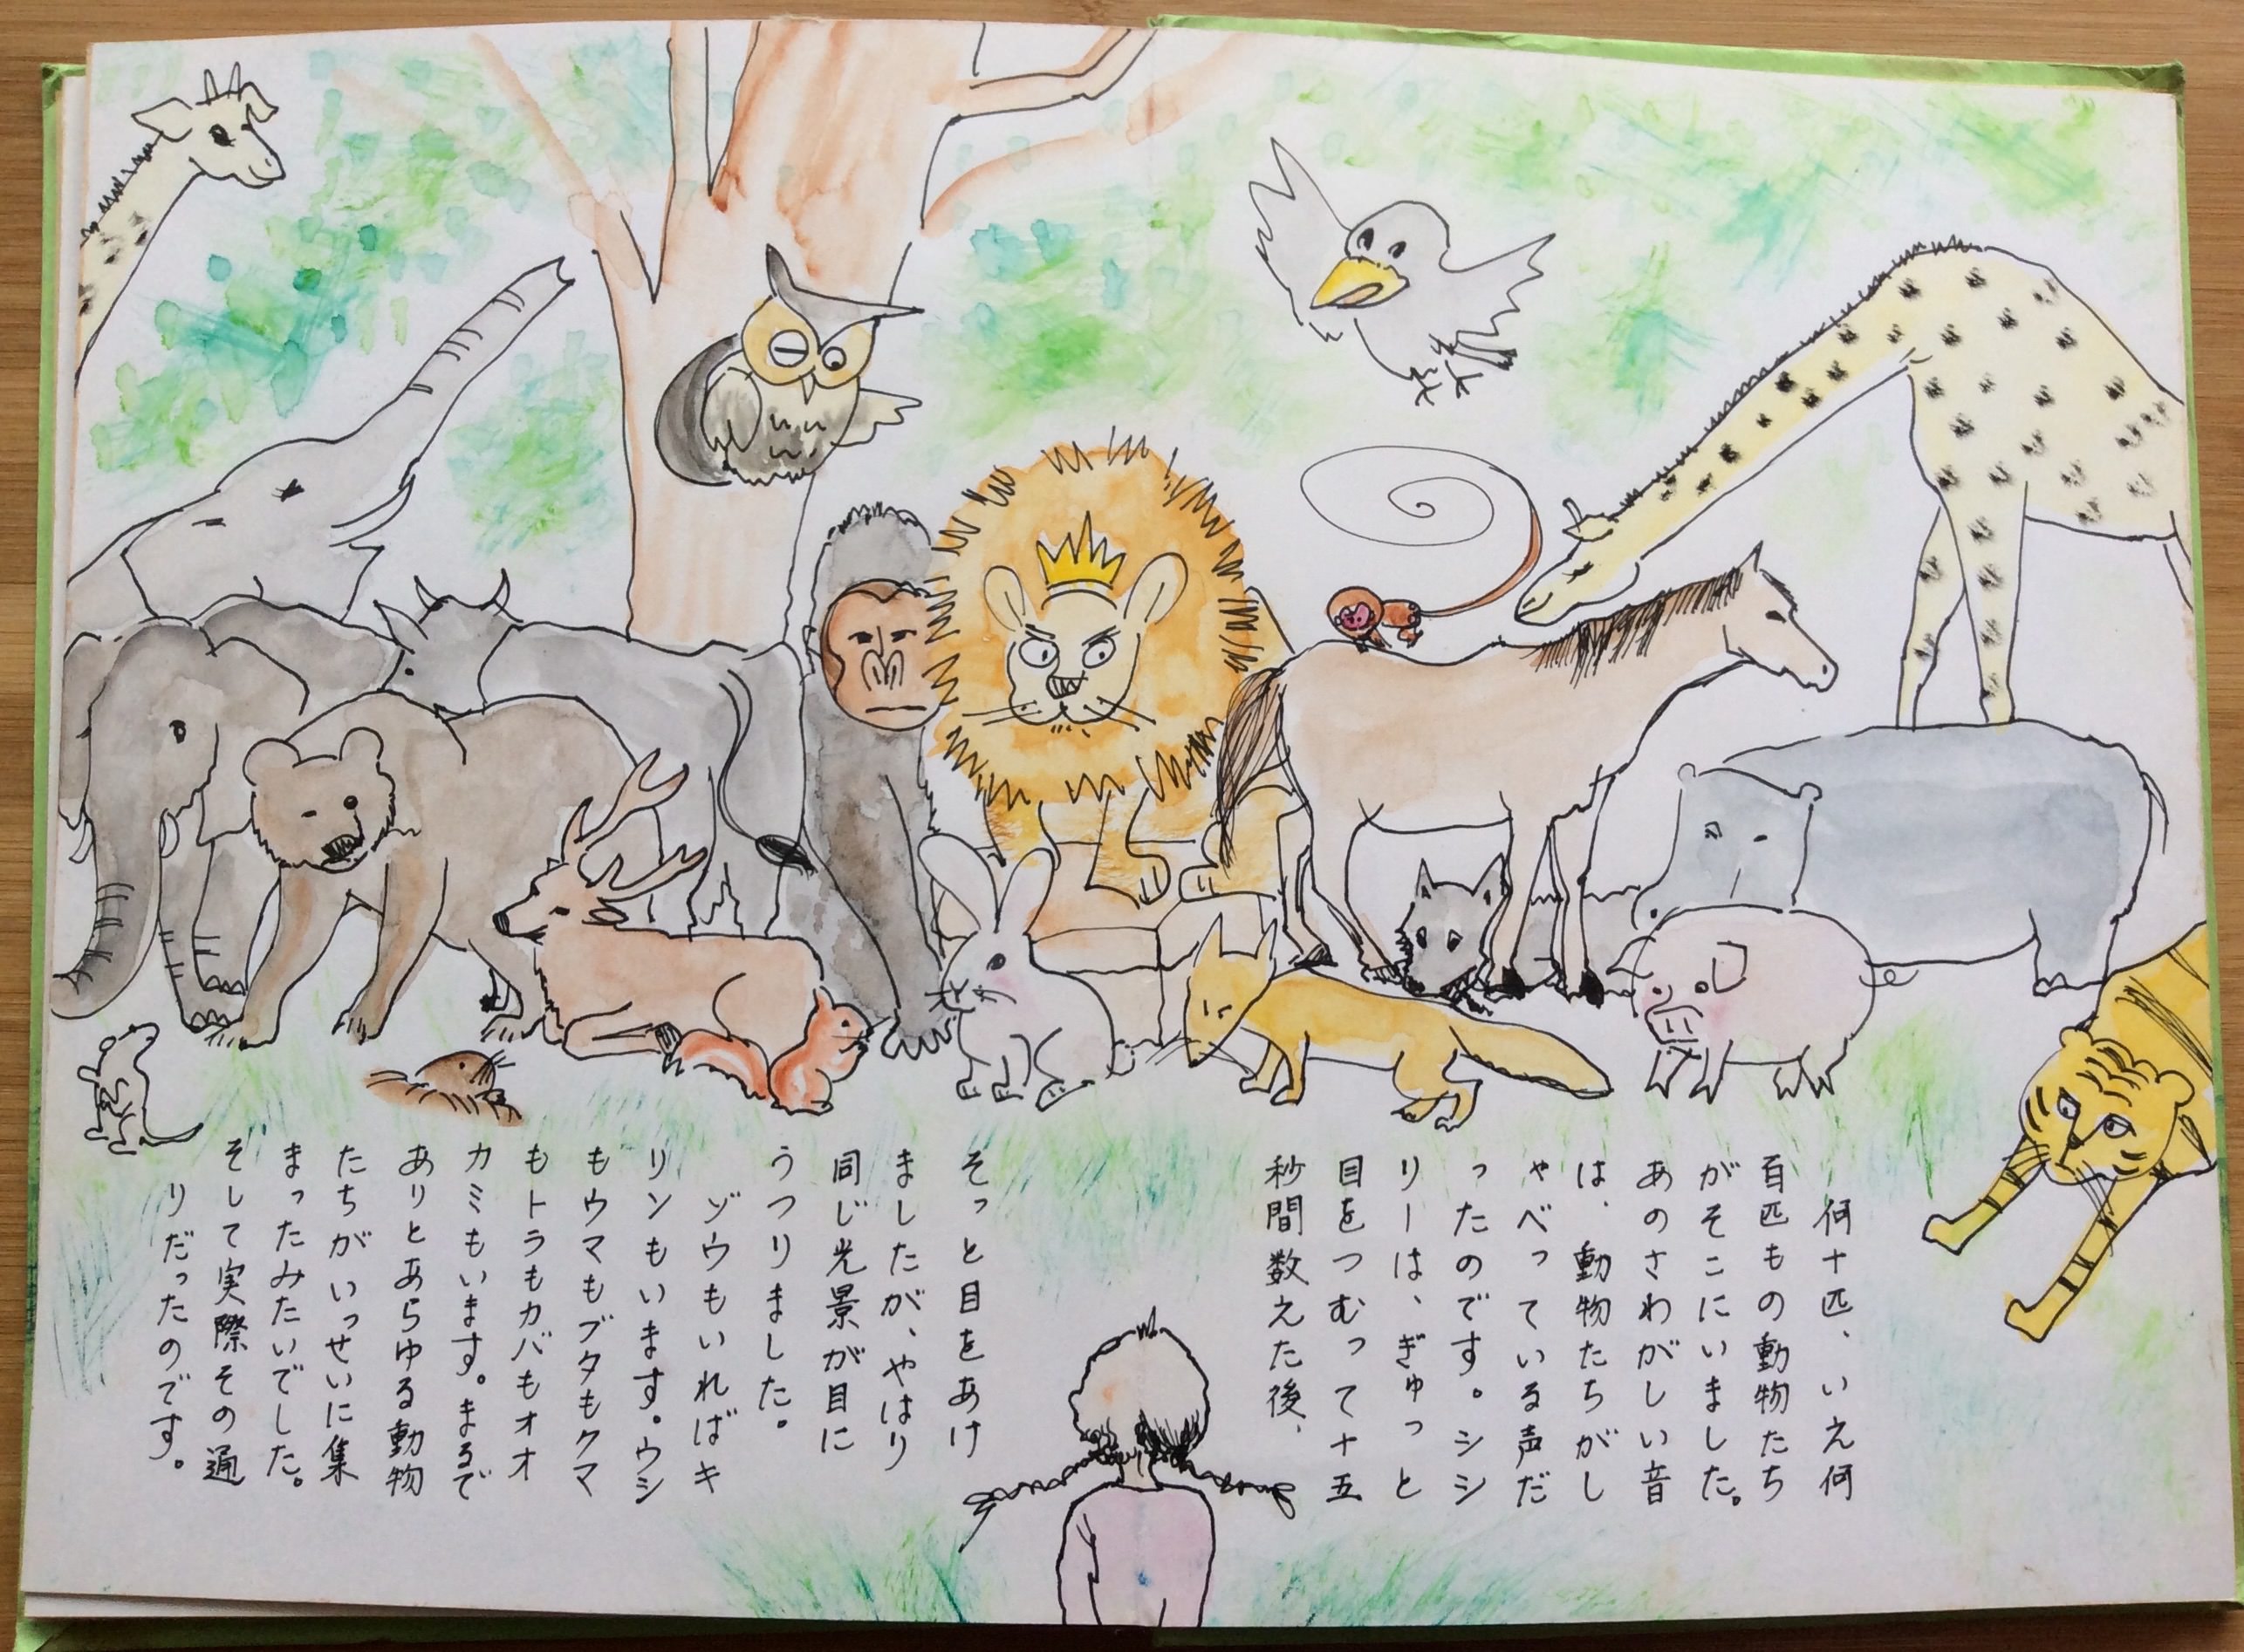 何十匹、いえ何
百匹もの動物たち
がそこにいました。
あのさわがしい音
は、動物たちがし
ゃべっている声だ
ったのです。シシ
リーは、ぎゅっと
目をつむって十五
秒間数えた後、
そっと目をあけ
ましたが、やはり
同じ光景が目に
うつりました。
ゾウもいればキ
リンもいます。ウシ
もウマもブタもクマ
もトラもカバもオオ
カミもいます。まるで
ありとあらゆる動物
たちがいっせいに集
まったみたいでした。
そして実際その通
りだったのです。